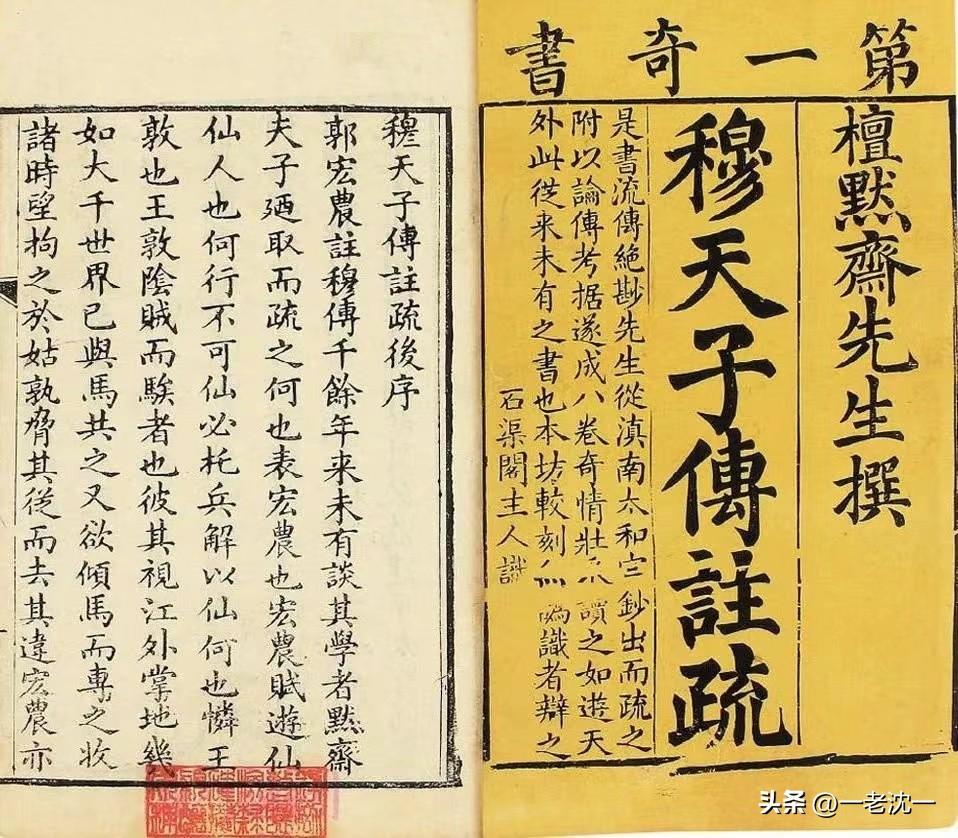 第一奇書
檀默齋先生撰
穆天子傳註疏
是書流傳絶尠先生從滇南太和鈔出而疏之
附以論傳考据遂成八卷奇情壯讀之如遊天
外此從来未有之書也本坊較刻識者辯之
石渠閣主人識
穆天子傳註疏後序
郭宏農註穆傳千餘年来未有談其學者默齋
夫子廼取而疏之何也表宏農也宏農賦遊仙
仙人也何行不可仙必托兵解以仙何也憐王
敦也王敦陰賊而騃者也彼其視江外掌地幾
如大千世界已與馬共之又欲傾馬而專之收
諸時望拘之於姑孰脅其從而去其違宏農亦
头条 @一老沈一